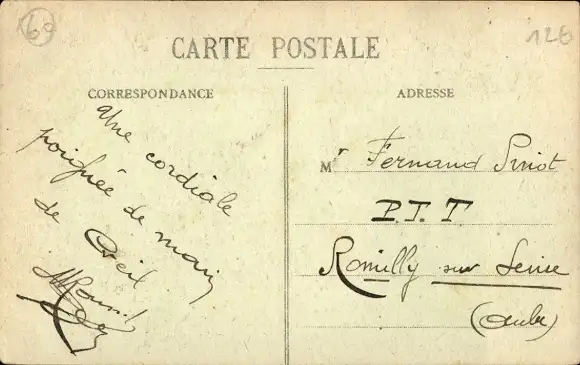 69
126
CARTE POSTALE
CORRESPONDANCE
Une cordiale
poignée de main
de Creil
ADRESSE
Mr Fernand Pinot
P.T.T
Romilly sur Seine
(Aube)